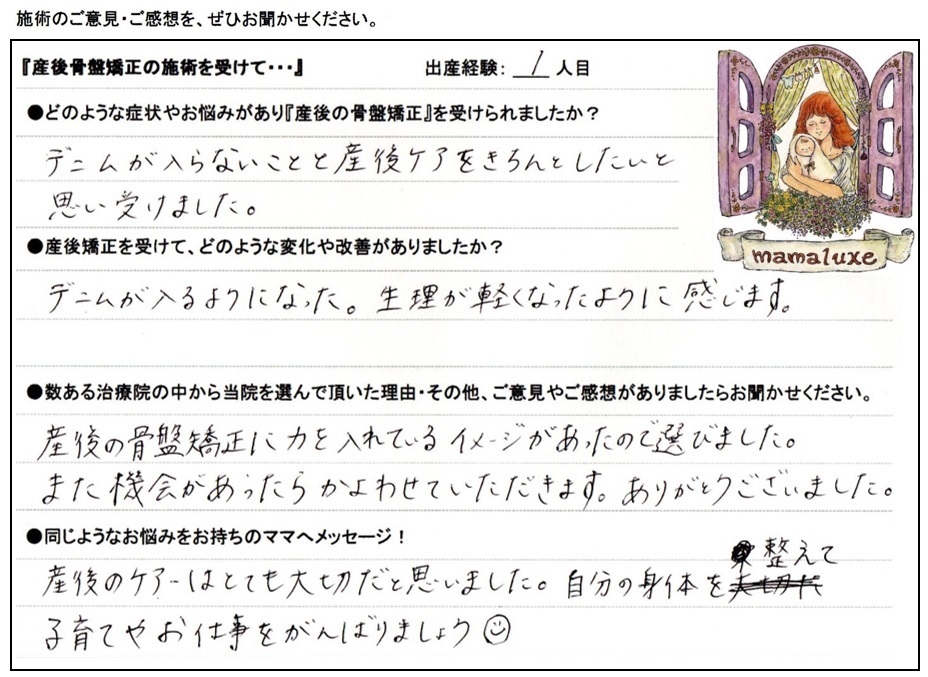 施術のご意見・ご感想を、ぜひお聞かせください。
『産後骨盤矯正の施術を受けて・・・』 出産経験： 1 人目
●どのような症状やお悩みがあり『産後の骨盤矯正』を受けられましたか？
デニムが入らないことと産後ケアをきちんとしたいと
思い受けました。
●産後矯正を受けて、どのような変化や改善がありましたか？
mamaluxe
デニムが入るようになった。生理が軽くなったように感じます。
●数ある治療院の中から当院を選んで頂いた理由・その他、ご意見やご感想がありましたらお聞かせください。
産後の骨盤矯正に力を入れているイメージがあったので選びました。
また機会があったらかよわせていただきます。ありがとうございました。
●同じようなお悩みをお持ちのママへメッセージ！
整えて
産後のケアーはとても大切だと思いました。自分の身体を大切に
子育てやお仕事をがんばりましょう☺